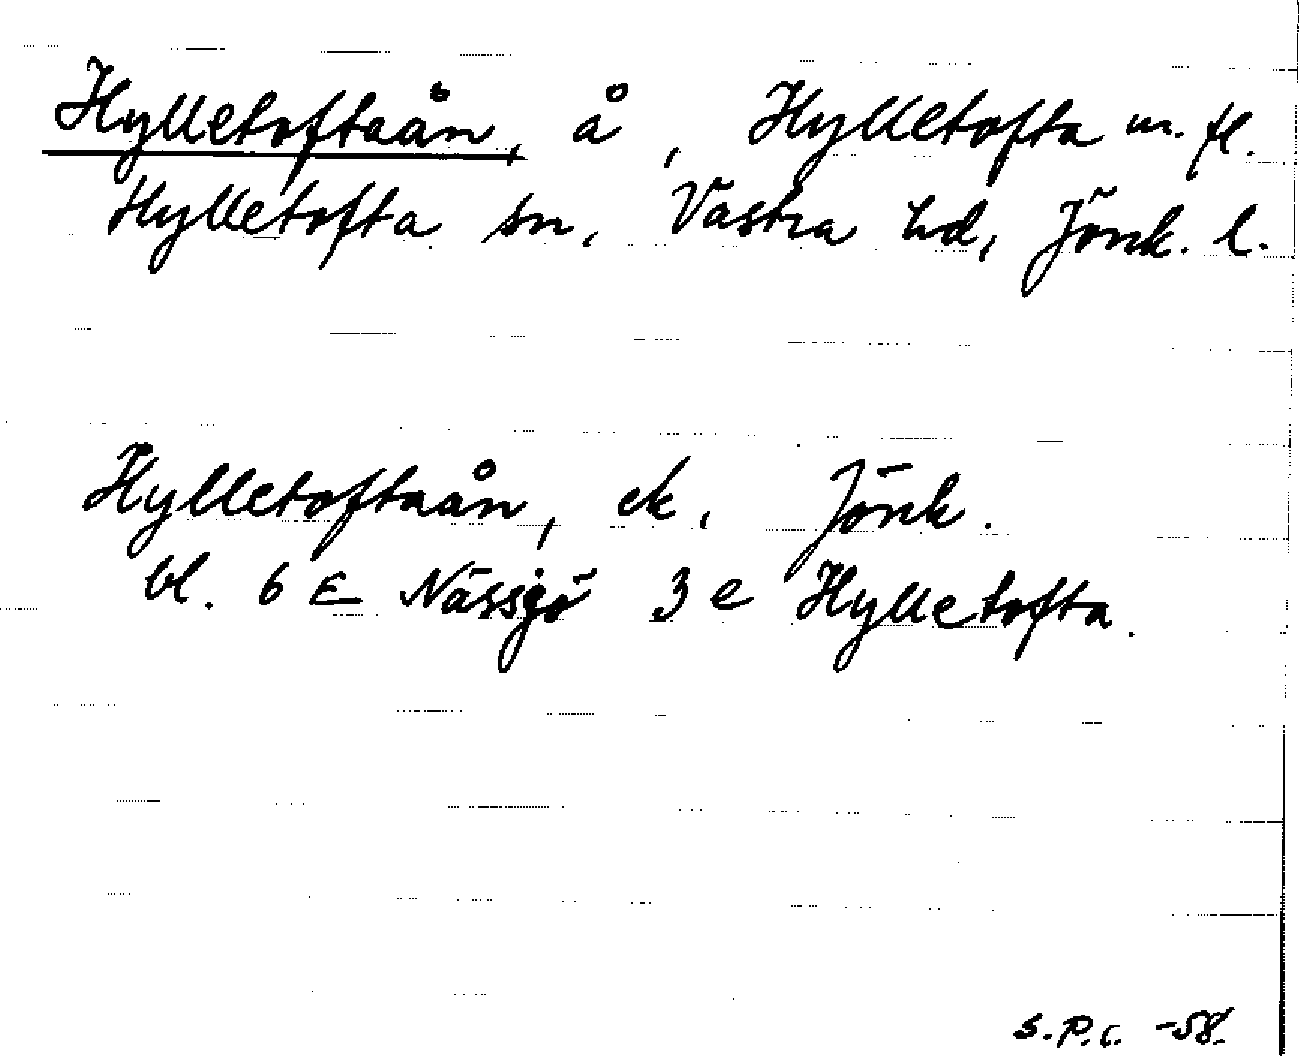 Hylletoftaån, å, Hylletofta m. fl.
Hylletofta sn, Västra hd, Jönk. l.
Hylletoftaån, ek, Jönk.
bl. 6 E Nässjö 3 e Hylletofta.
S.P.C. -58.